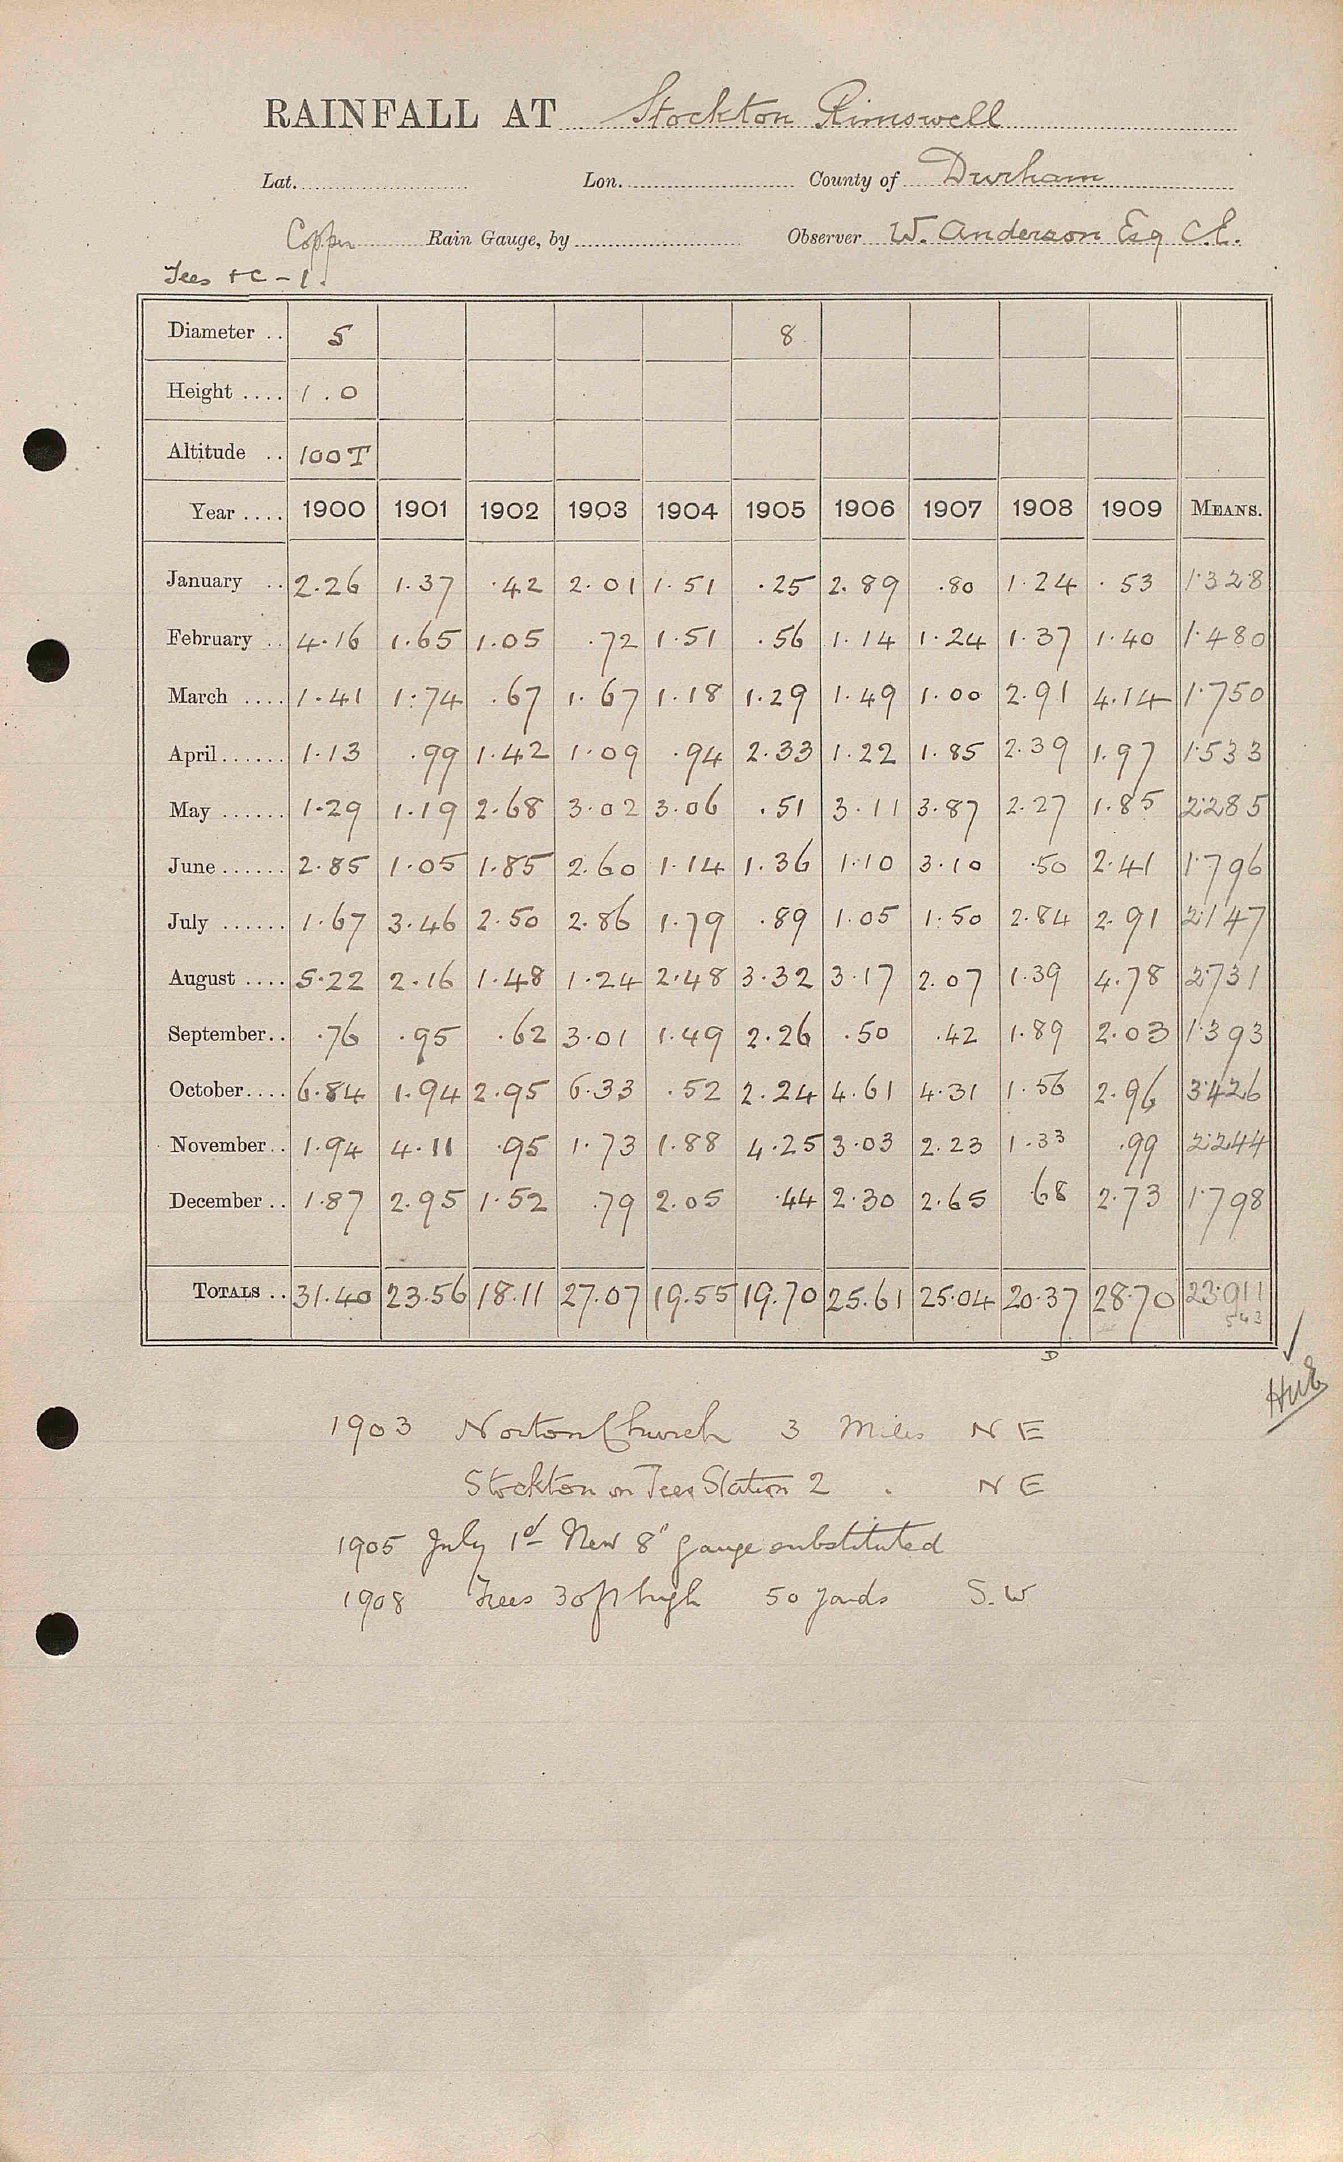 RAINFALL AT Stockton Rimswell
Lat. Lon. County of Durham
Copper Rain Gauge, by Observer W. Anderson Esq C.E.
Tees &c - 1.
Diameter .. 5 8
Height .... 1.0
Altitude .. 100 T
Year .... 1900 1901 1902 1903 1904 1905 1906 1907 1908 1909 MEANS.
January .. 2.26 1.37 .42 2.01 1.51 .25 2.89 .80 1.24 .53 1.328
February .. 4.16 1.65 1.05 .72 1.51 .56 1.14 1.24 1.37 1.40 1.480
March .... 1.41 1.74 .67 1.67 1.18 1.29 1.49 1.00 2.91 4.14 1.750
April ...... 1.13 .99 1.42 1.09 .94 2.33 1.22 1.85 2.39 1.97 1.533
May ...... 1.29 1.19 2.68 3.02 3.06 .51 3.11 3.87 2.27 1.85 2.285
June ...... 2.85 1.05 1.85 2.60 1.14 1.36 1.10 3.10 .50 2.41 1.796
July ...... 1.67 3.46 2.50 2.86 1.79 .89 1.05 1.50 2.84 2.91 2.147
August .... 5.22 2.16 1.48 1.24 2.48 3.32 3.17 2.07 1.39 4.78 2.731
September.. .76 .95 .62 3.01 1.49 2.26 .50 .42 1.89 2.03 1.393
October.... 6.84 1.94 2.95 6.33 .52 2.24 4.61 4.31 1.56 2.96 3.426
November.. 1.94 4.11 .95 1.73 1.88 4.25 3.03 2.23 1.33 .99 2.244
December .. 1.87 2.95 1.52 .79 2.05 .44 2.30 2.65 .68 2.73 1.798
TOTALS .. 31.40 23.56 18.11 27.07 19.55 19.70 25.61 25.04 20.37 28.70 23.911
543
D
1903 Norton Church 3 Miles N E
Stockton on Tees Station 2 . N E
1905 July 1st New 8" gauge substituted
1908 Trees 30 ft high 50 yards S.W